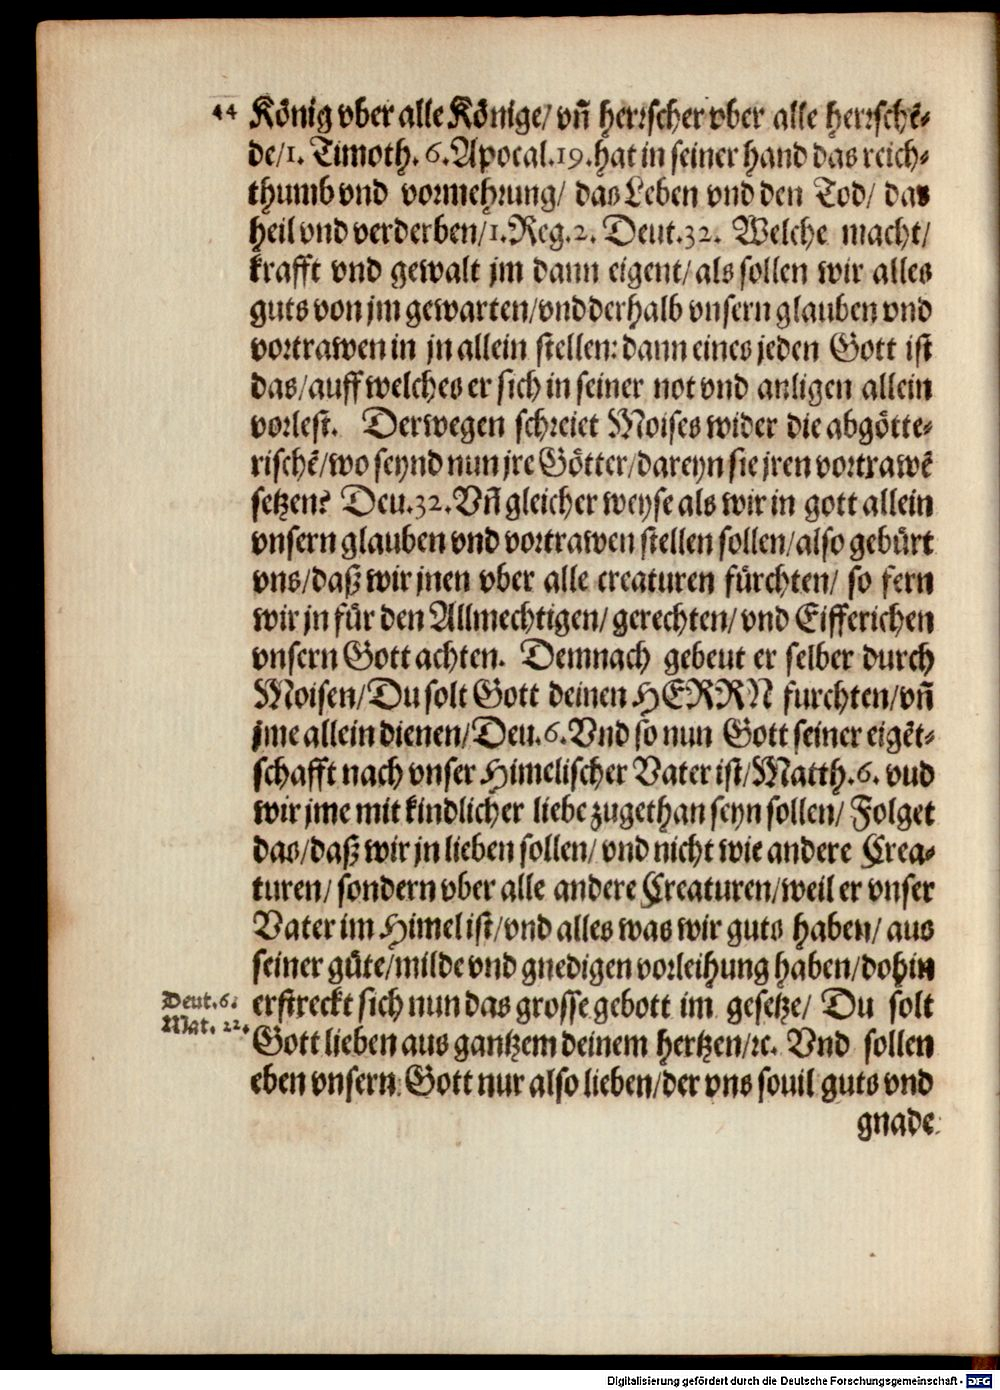 44 König vber alle Könige/ vñ herrscher vber alle herrschē-
de/1. Timoth. 6. Apocal. 19. hat in seiner hand das reich-
thumb vnd vormehrung/ das Leben vnd den Tod/ das
heil vnd verderben/1. Reg. 2. Deut. 32. Welche macht/
krafft vnd gewalt jm dann eigent/ als sollen wir alles
guts von jm gewarten/ vnd derhalb vnsern glauben vnd
vortrawen in jn allein stellen: dann eines jeden Gott ist
das/ auff welches er sich in seiner not vnd anligen allein
vorlest. Derwegen schreiet Moises wider die abgötte-
rischē/ wo seynd nun jre Götter/ dareyn sie jren vortrawē
setzen? Deu. 32. Vñ gleicher weyse als wir in gott allein
vnsern glauben vnd vortrawen stellen sollen/ also gebürt
vns/ daß wir jnen vber alle creaturen fürchten/ so fern
wir jn für den Allmechtigen/ gerechten/ vnd Eifferichen
vnsern Gott achten. Demnach gebeut er selber durch
Moisen/ Du solt Gott deinen HERRN furchten/ vñ
jme allein dienen/ Deu. 6. Vnd so nun Gott seiner eigēt-
schafft nach vnser Himelischer Vater ist/ Matth. 6. vnd
wir jme mit kindlicher liebe zugethan seyn sollen/ Folget
das/ daß wir jn lieben sollen/ vnd nicht wie andere Crea-
turen/ sondern vber alle andere Creaturen/ weil er vnser
Vater im Himel ist/ vnd alles was wir guts haben/ aus
seiner güte/ milde vnd gnedigen vorleihung haben/ dohin
Deut. 6. erstreckt sich nun das grosse gebott im gesetze/ Du solt
Mat. 22. Gott lieben aus gantzem deinem hertzen/ ꝛc. Vnd sollen
eben vnsern Gott nur also lieben/ der vns souil guts vnd
gnade
Digitalisierung gefördert durch die Deutsche Forschungsgemeinschaft - DFG